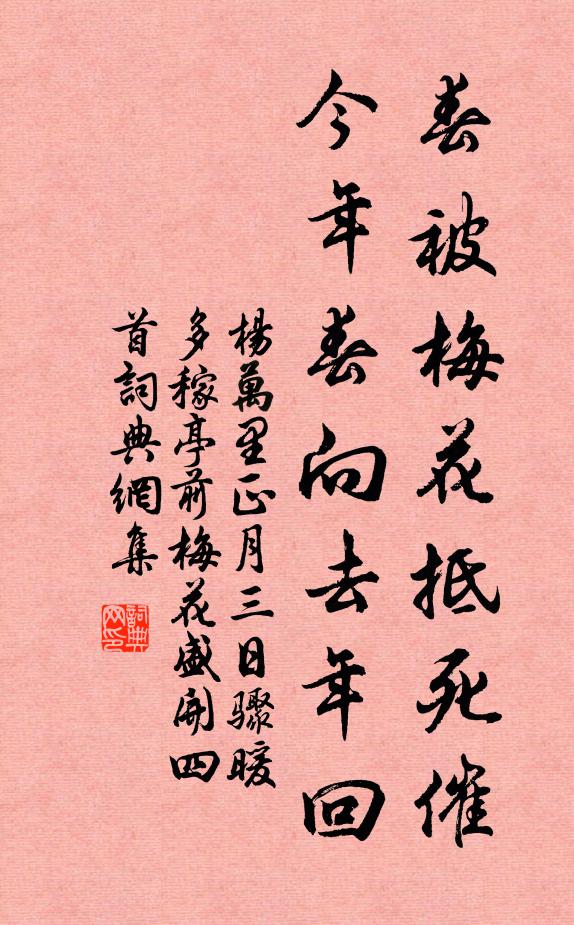 春被梅花抵死催
今年春向去年回
楊萬里正月三日驟暖
多稼亭前梅花盛開四
首詞典網集
詞典网印